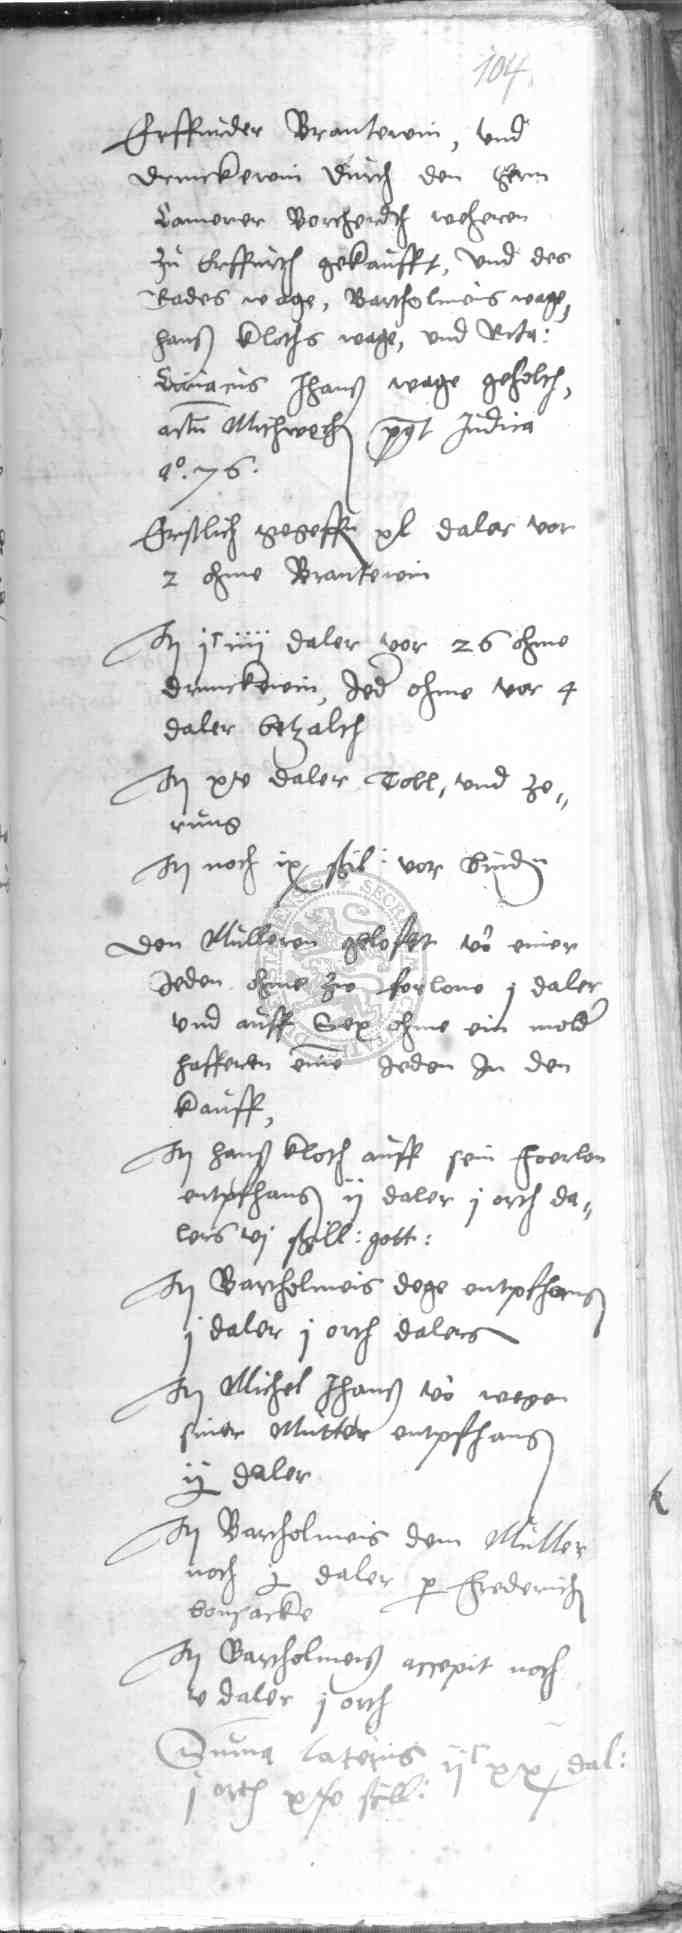 104.
Erffurder Brantewin, und
drinckewin durch den Hern
Camerer Borcherdt weheren
zu Erffurth gekaufft, und des
Rades wage, Bartholmeis wage,
hanß kloths wage, und
Ciriacus Jhanß wage geholth,
actum Mithwoch post Judica
Ao. 76.
Erstlich gegeffen xl daler vor
2 ohme Brantewin
It jc iiii daler vor 26 ohme
drinckewin, Jeder ohme vor 4
daler betzalth
It xv daler Toll, und ze„
rung
It noch ix schil: vor binden
Den Mülleren gelofet vo einer
Jeden ohme zo forlone j daler
und auff Sex ohme ein molder
hafferen eine Jeden In den
kauff,
It hanß kloth auff sein foerlon
entpfhang ij daler j orth da„
lers vj schill: gott:
It Bartholmeis dege entpfhang
j daler j orth dalers
It Michel Jhanß vo wegen
siner Mutter entpfhang
ij daler
It Bartholmeis dem Müller
noch daler per Frederich
bonsacke
It Bartholmeis accepit noch
v daler j orth
Summa lateris ijc xx dal:
j orth schill: